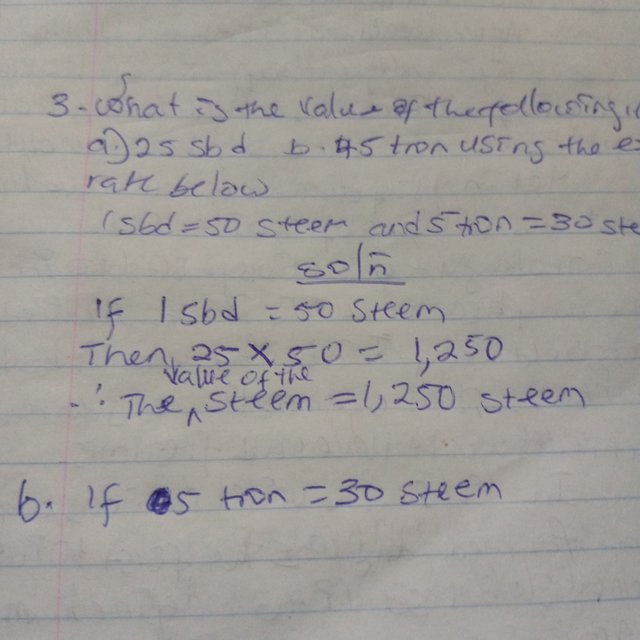 3. What is the value of the following i
a.) 25 sbd b. 45 tron using the e
rate below
1 sbd = 50 steem and 5 tron = 30 ste
sol/n̄
If 1 Sbd = 50 Steem
Then, 25 × 50 = 1,250
value of the
∴ The ^ Steem = 1,250 steem
b. If 5 tron = 30 steem